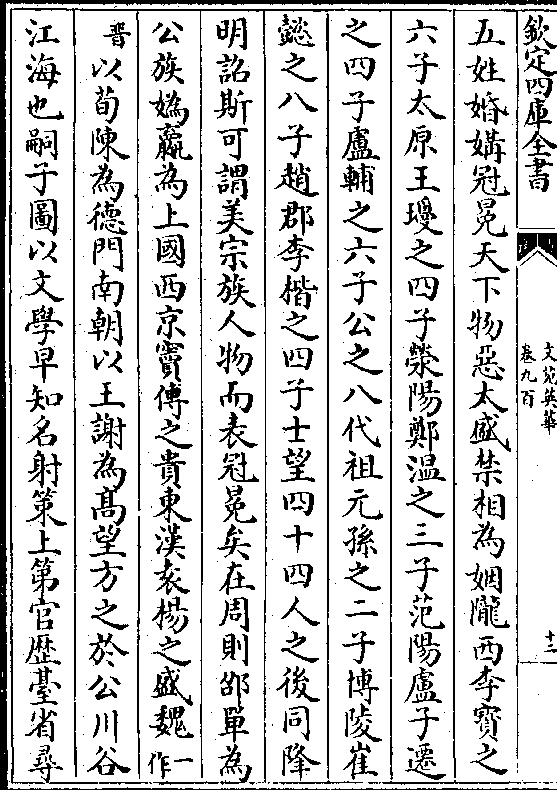 欽定四庫全書
文苑英華
卷九百
十三
五姓婚媾冠冕天下物惡太盛禁相為姻隴西李寶之
六子太原王瓊之四子滎陽鄭温之三子范陽盧子遷
之四子盧輔之六子公之八代祖元孫之二子博陵崔
懿之八子趙郡李楷之四子士望四十四人之後同降
明詔斯可謂美宗族人物而表冠冕矣在周則邵單為
公族嬀嬴為上國西京竇傅之貴東漢袁楊之盛魏一作
晉以荀陳為德門南朝以王謝為髙望方之於公川谷
江海也嗣子圖以文學早知名射策上第官歴臺省尋